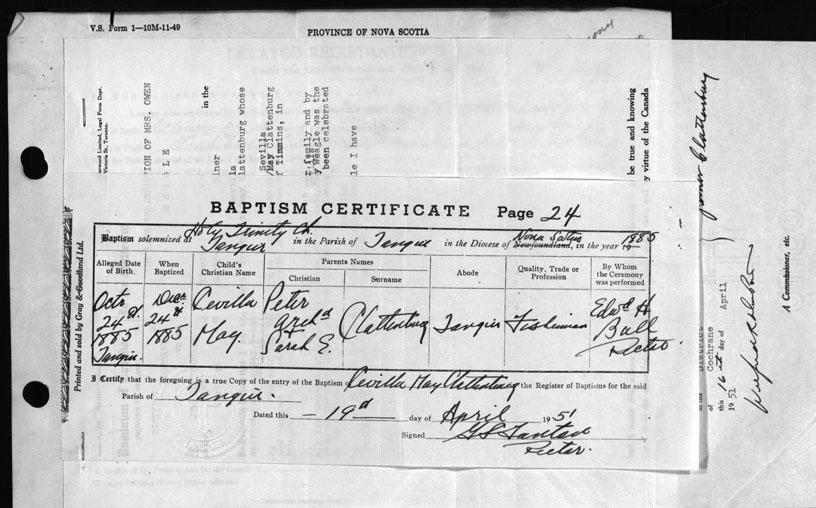 V.S. Form 1—10M-11-49
PROVINCE OF NOVA SCOTIA
ION OF MRS. OWEN
in the
lattenburg whose
Sevilla
May Clattenburg
f Timmins, in
family and by
y Weagle was the
been celebrated
le I have
be true and knowing
y virtue of the Canada
BAPTISM CERTIFICATE Page 24
Holy Trinity Ch.
Baptism solemnized at Tangier in the Parish of Tangier in the Diocese of Newfoundland, Nova Scotia in the year 19 1885
Alleged Date of Birth.
When Baptized
Child's Christian Name
Parents Names
Christian
Surname
Abode
Quality, Trade or Profession
By Whom the Ceremony was performed
Octr 24th 1885 Tangier.
Decr 24th 1885
Cevilla May.
Peter Archd Sarah E.
Clattenburg
Tangier
Fisherman
Edwd H. Ball Rector
I Certify that the foregoing is a true Copy of the entry of the Baptism of Cevilla May Clattenburg the Register of Baptisms for the said
Parish of Tangier.
Dated this — 19th day of April 1951
Signed
Rector.
Printed and sold by Gray & Goodland Ltd.
Clattenburg
A Commissioner, etc.
of Cochrane
this 16th day of April
1951